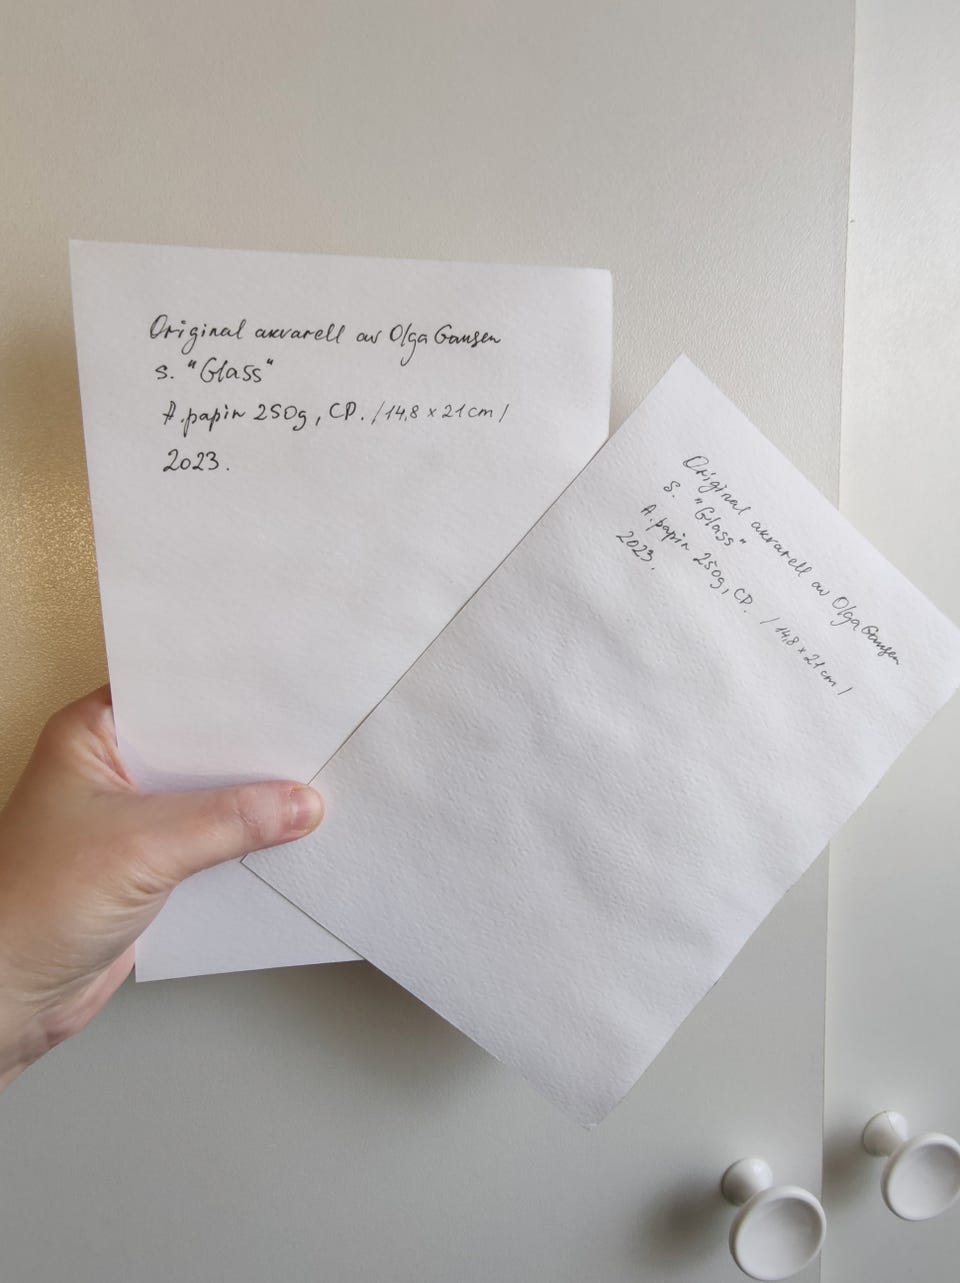 Original akvarell av Olga Gansen
s. "Glass"
A. papir 250g, CP. /14,8 x 21 cm/
2023.
Original akvarell av Olga Gansen
s. "Glass"
A. papir 250g, CP. /14,8 x 21 cm/
2023.